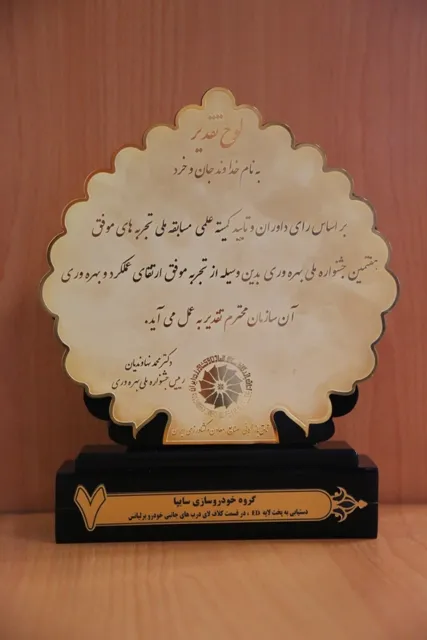 لوح تقدیر
به نام خداوند جان و خرد
بر اساس رای داوران و تایید کمیته علمی مسابقه ملی تجربه های موفق
هفتمین جشنواره ملی بهره وری بدین وسیله از تجربه موفق ارتقای عملکرد و بهره وری
آن سازمان محترم تقدیر به عمل می آید.
دکتر محمد نهاوندیان
رییس جشنواره ملی بهره وری
۷
گروه خودروسازی سایپا
دستیابی به پخت لایه ED ، در قسمت کلاف لای درب های جانبی خودرو برلیانس